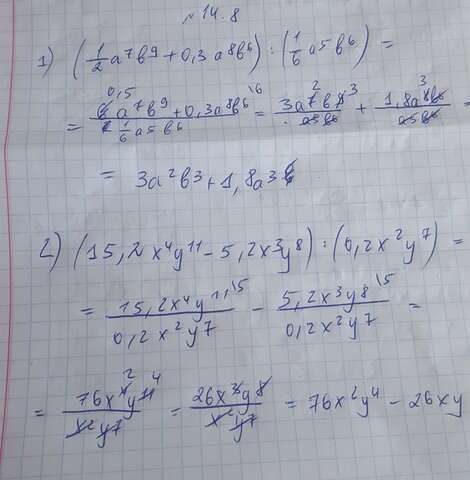 №14.8
1) (1/2 a⁷b⁹ + 0,3a⁸b⁶) : (1/6 a⁵b⁶) =
= 0,5 a⁷b⁹ + 0,3a⁸b⁶ \6 / 1/6 a⁵b⁶ = 3a⁷b⁹ / a⁵b⁶ + 1,8a⁸b⁶ / a⁵b⁶ =
= 3a²b³ + 1,8a³
2) (15,2x⁴y¹¹ - 5,2x³y⁸) : (0,2x²y⁷) =
= 15,2x⁴y¹¹ \5 / 0,2x²y⁷ - 5,2x³y⁸ \5 / 0,2x²y⁷ =
= 76x⁴y¹¹ / x²y⁷ = 26x³y⁸ / x²y⁷ = 76x²y⁴ - 26xy